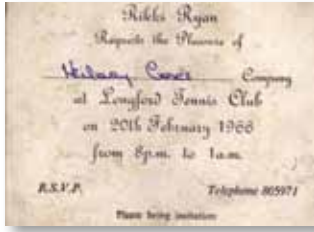 Rikki Ryan
Requests the Pleasure of
Hilary Company
at Longford Tennis Club
on 20th February 1966
from 8p.m. to 1a.m.
R.S.V.P. Telephone 805971
Please bring invitation